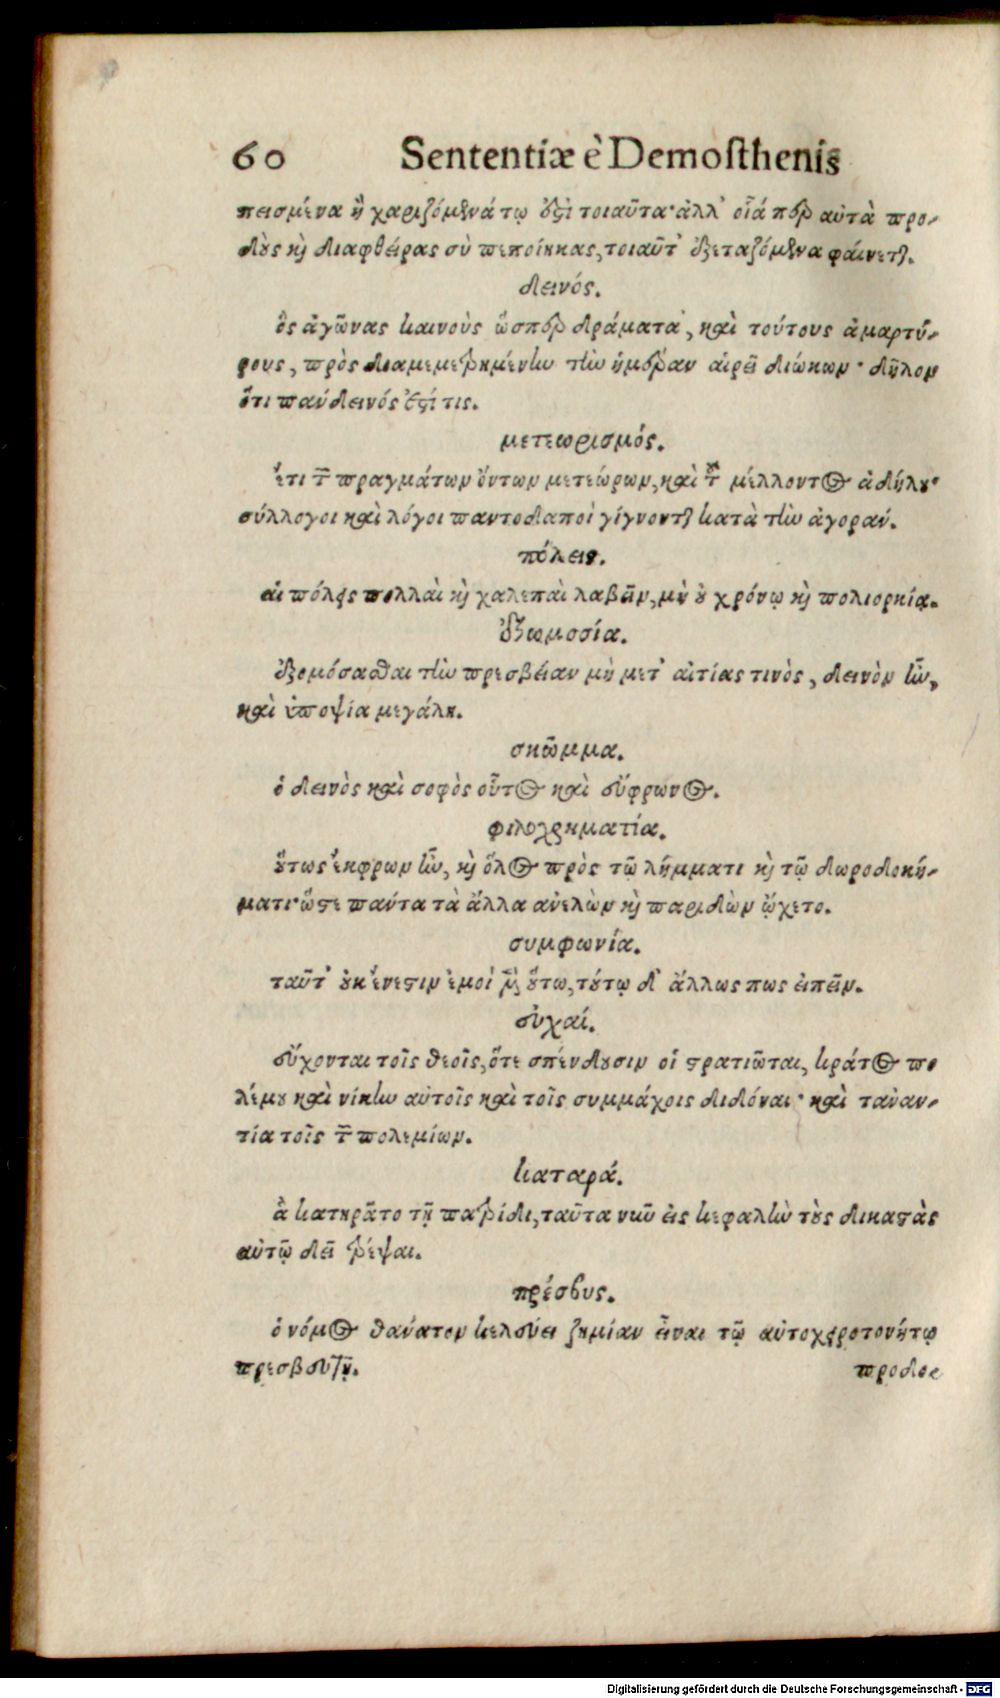 60 Sententiæ è Demosthenis
πεισμένα ἢ χαριζόμενά τῳ ἐστὶ τοιαῦτα· ἀλλ' οἷά περ αὐτὰ προ-
δοὺς καὶ διαφθείρας σὺ πεποίηκας, τοιαῦτ' ἐξεταζόμενα φαίνεται.
δεινός.
ὃς ἀγῶνας καινοὺς ὥσπερ δράματα, καὶ τούτους ἀμαρτύ-
ρους, πρὸς διαμεμετρημένην τὴν ἡμέραν αἱρεῖ διώκων· δῆλον
ὅτι πανδεινός ἐστί τις.
μετεωρισμός.
ἔτι τῶν πραγμάτων ὄντων μετεώρων, καὶ τοῦ μέλλοντος ἀδήλου·
σύλλογοι καὶ λόγοι παντοδαποὶ γίγνονται κατὰ τὴν ἀγοράν.
πόλεις.
αἱ πόλεις πολλαὶ καὶ χαλεπαὶ λαβεῖν, μὴ οὐ χρόνῳ καὶ πολιορκίᾳ.
ἐξωμοσία.
ἐξομόσασθαι τὴν πρεσβείαν μὴ μετ' αἰτίας τινὸς, δεινὸν ἦν,
καὶ ὑποψία μεγάλη.
σκῶμμα.
ὁ δεινὸς καὶ σοφὸς οὗτος καὶ εὔφρωνος.
φιλοχρηματία.
οὕτως ἔκφρων ἦν, καὶ ὅλος πρὸς τῷ λήμματι καὶ τῷ δωροδοκή-
ματι· ὥστε πάντα τὰ ἄλλα ἀνελὼν καὶ παριδὼν ᾤχετο.
συμφωνία.
ταῦτ' οὐκ ἔνεστιν ἐμοὶ μὲν οὕτω, τούτῳ δ' ἄλλως πως εἰπεῖν.
εὐχαί.
εὔχονται τοῖς θεοῖς, ὅτε σπένδουσιν οἱ στρατιῶται, κράτος πο
λέμου καὶ νίκην αὐτοῖς καὶ τοῖς συμμάχοις διδόναι· καὶ τἀναν-
τία τοῖς τῶν πολεμίων.
κατάρα.
ἃ κατηρᾶτο τῇ πατρίδι, ταῦτα νῦν εἰς κεφαλὴν τοὺς δικαστὰς
αὐτῷ δεῖ τρέψαι.
πρέσβυς.
ὁ νόμος θάνατον κελεύει ζημίαν εἶναι τῷ αὐτοχειροτονήτῳ
πρεσβευτῇ. προδοσ
Digitalisierung gefördert durch die Deutsche Forschungsgemeinschaft - DFG